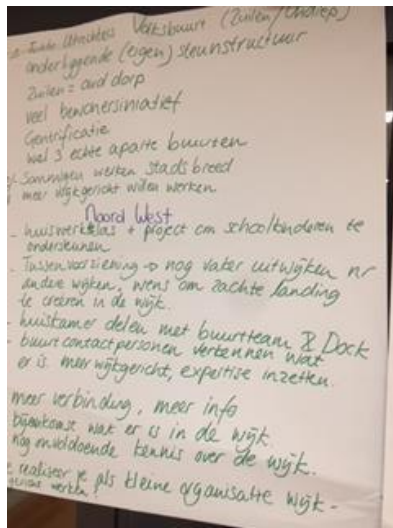 echte Utrechtse Volksbuurt (Zuilen/Ondiep)
onderliggende (eigen) steunstructuur
Zuilen = oud dorp
veel bewonersiniatief
Gentrificatie
wel 3 echte aparte buurten
Sommigen werken stadsbreed
meer wijkgericht willen werken
Noord West
- huiswerkklas + project om schoolkinderen te
ondersteunen
- Tussenvoorziening → nog vaker uitwijken nr
andere wijken, wens om zachte landing
te creëren in de wijk.
- huiskamer delen met buurtteam & Dock
- buurtcontactpersonen verkennen wat
er is. meer wijkgericht, expertise inzetten.
meer verbinding, meer info
bijeenkomst wat er is in de wijk.
nog onvoldoende kennis over de wijk.
realiseer je als kleine organisatie wijk-
gericht werken